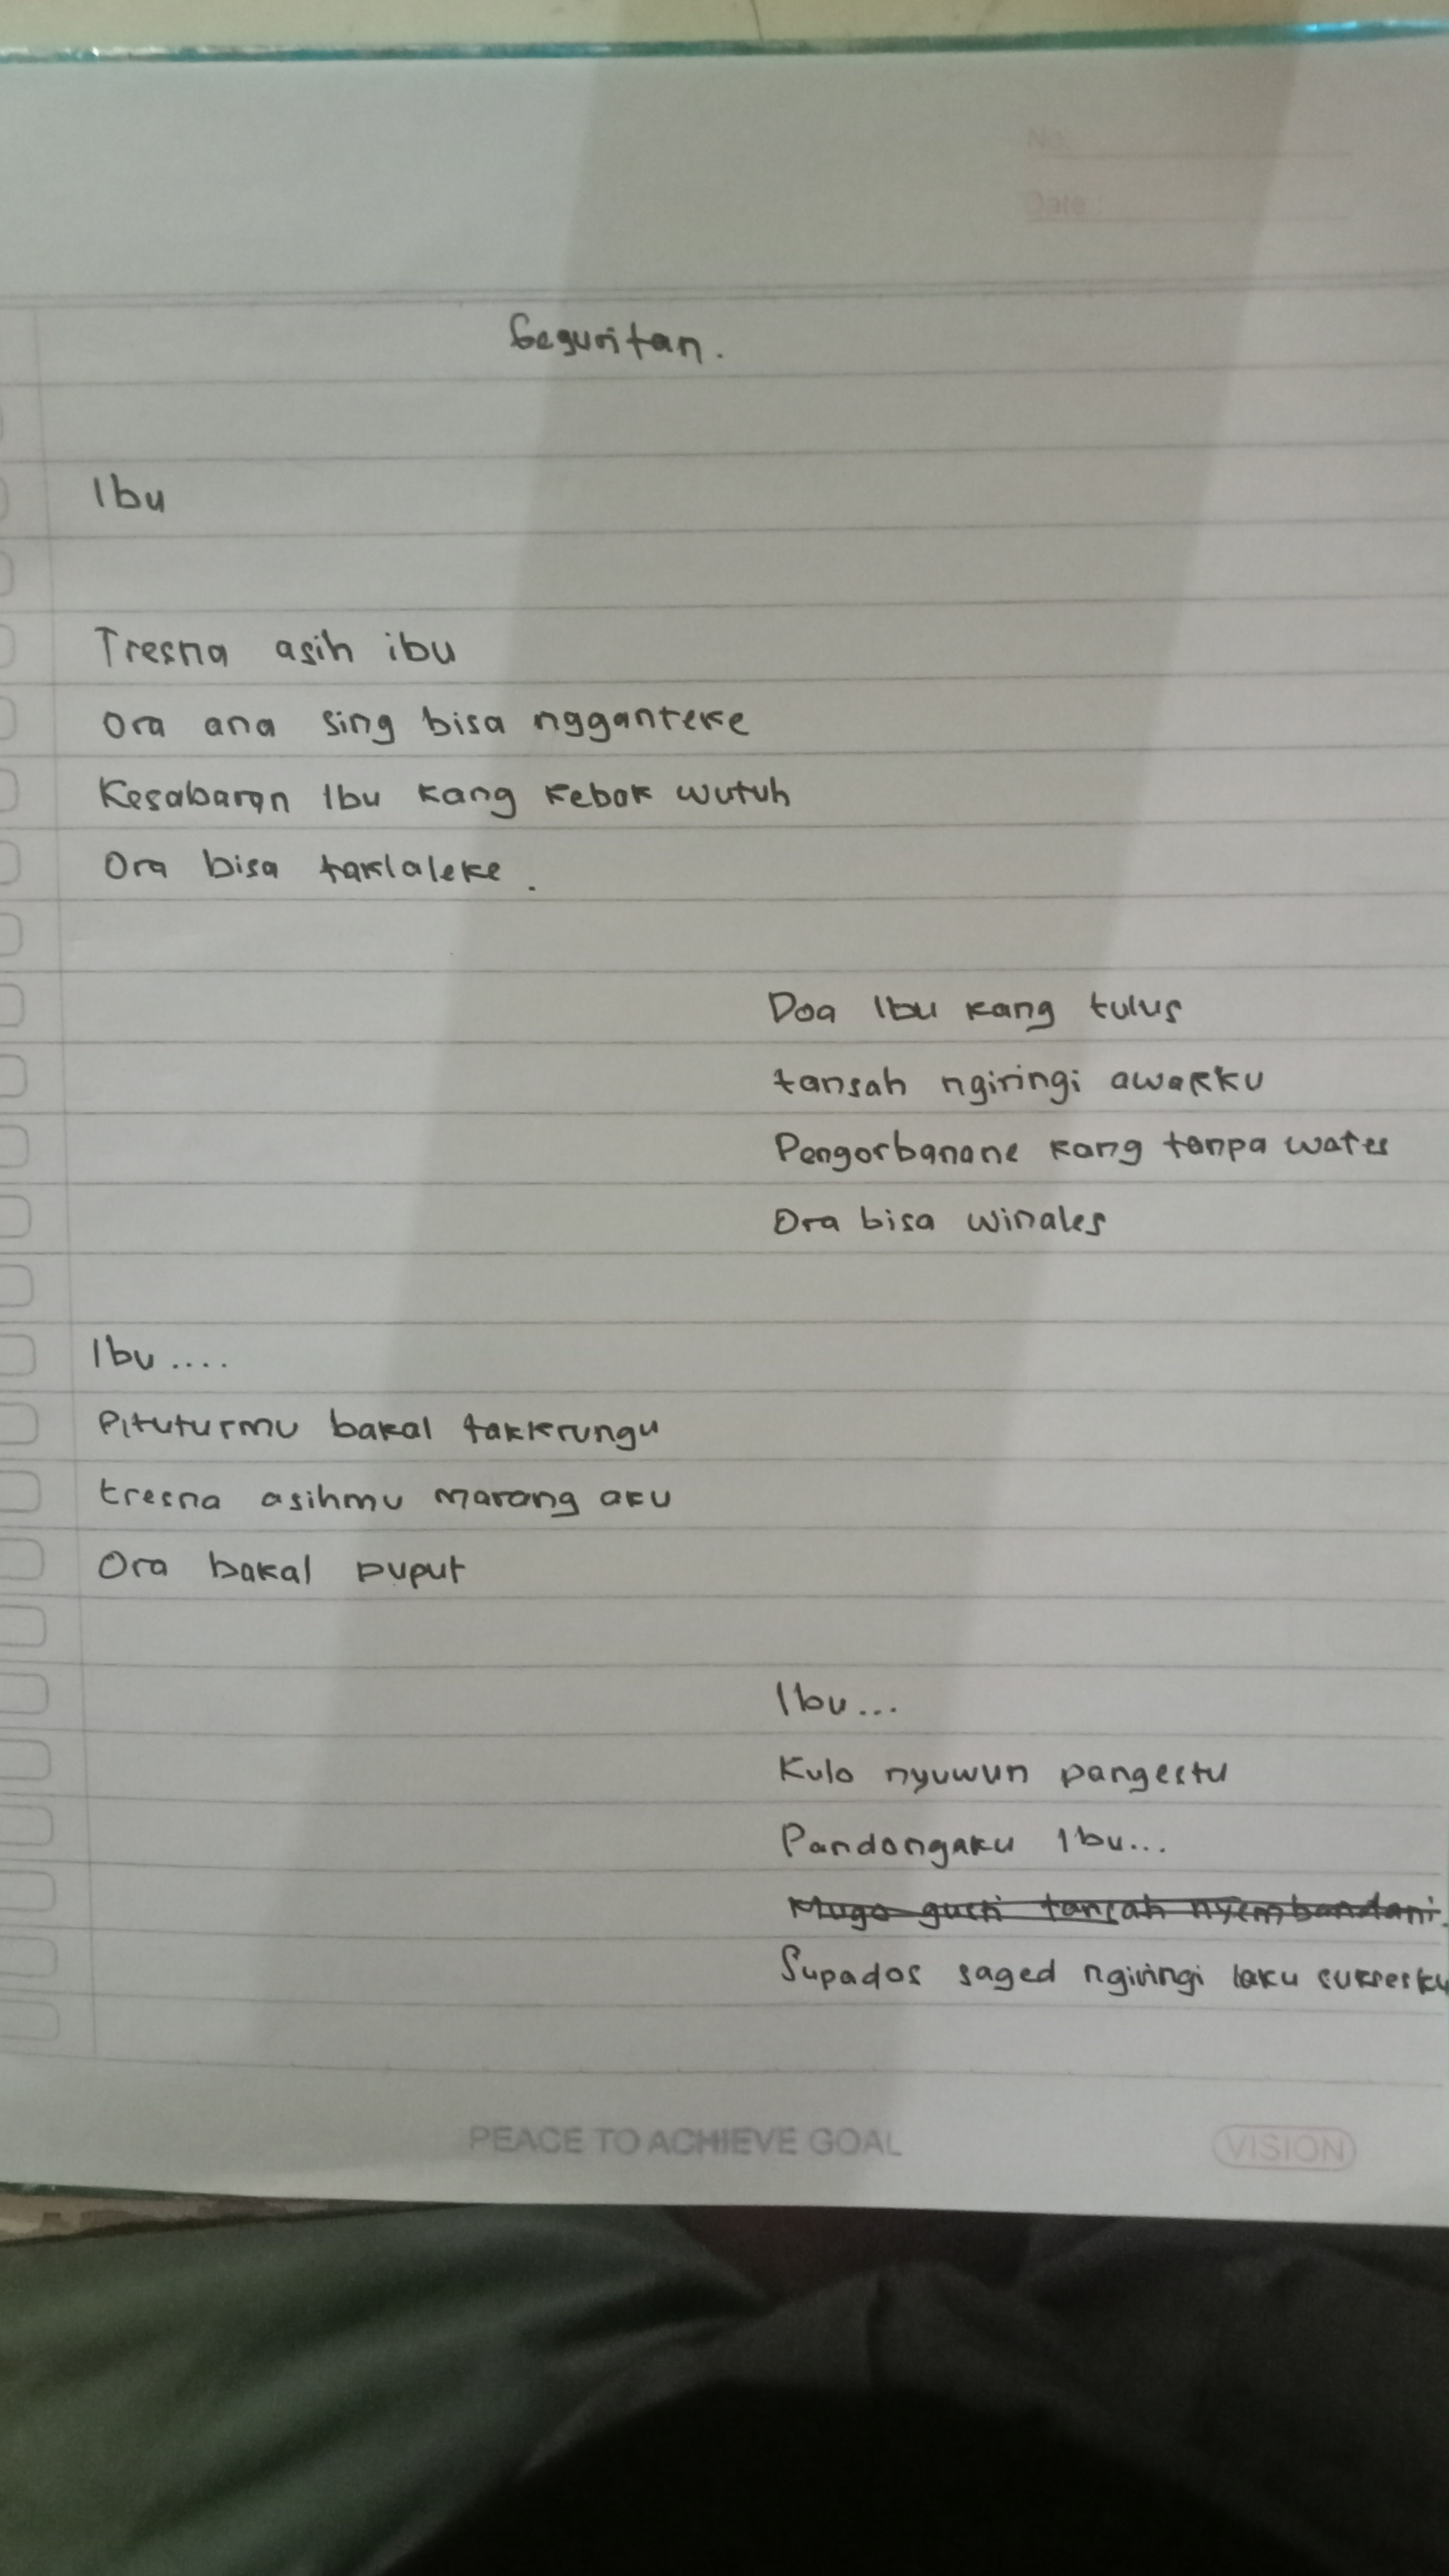 No.
Date :
Geguritan.
Ibu
Tresna asih ibu
Ora ana sing bisa ngganteke
Kesabaran Ibu kang kebak wutuh
Ora bisa taklaleke.
Doa Ibu kang tulus
tansah ngiringi awakku
Pengorbanane kang tanpa wates
Ora bisa winales
Ibu....
Pituturmu bakal takkrungu
tresna asihmu marang aku
Ora bakal puput
Ibu...
Kulo nyuwun pangestu
Pandongaku Ibu...
Mugo gusti tansah nyembandani.
Supados saged ngiringi laku suksesku
PEACE TO ACHIEVE GOAL
VISION